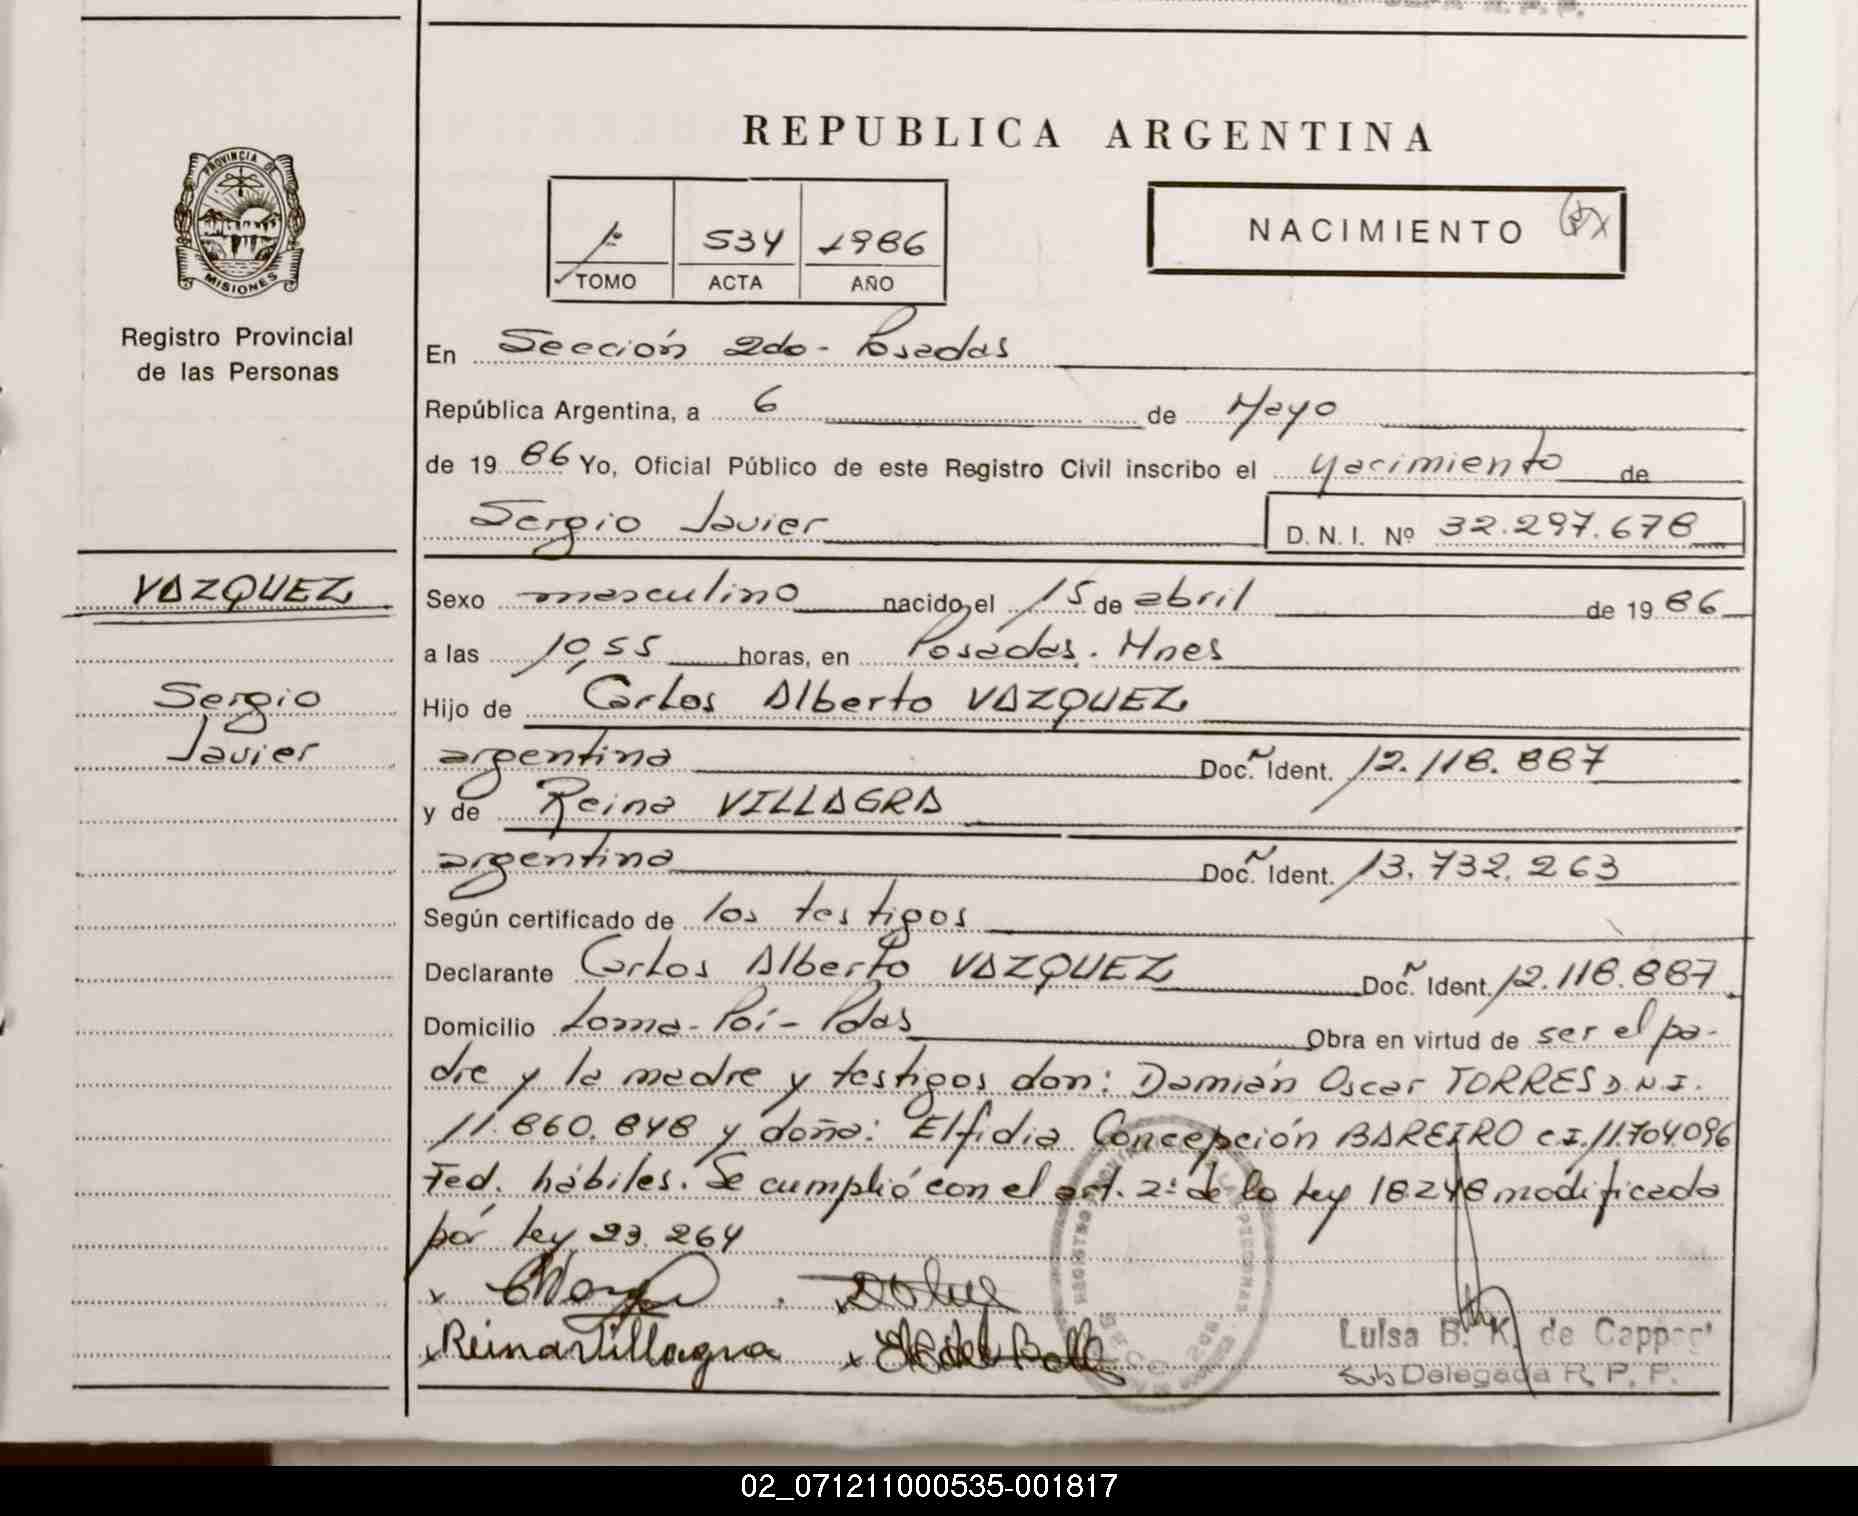 REPUBLICA ARGENTINA
PROVINCIA DE
MISIONES
Registro Provincial
de las Personas
1º 534 1986
TOMO ACTA AÑO
NACIMIENTO
En Sección 2do - Posadas
República Argentina, a 6 de Mayo
de 1986 Yo, Oficial Público de este Registro Civil inscribo el Nacimiento de
Sergio Javier D. N. I. Nº 32.297.678
VAZQUEZ
Sergio
Javier
Sexo masculino nacido el 15 de abril de 1986
a las 10,55 horas, en Posadas. Mnes
Hijo de Carlos Alberto VAZQUEZ
argentina Doc. Ident. 12.118.887
y de Reina VILLAGRA
argentina Doc. Ident. 13.732.263
Según certificado de los testigos
Declarante Carlos Alberto VAZQUEZ Doc. Ident. 12.118.887
Domicilio Loma-Poí-Pdas Obra en virtud de ser el pa-
dre y la madre y testigos don: Damián Oscar TORRES D.N.I.
11.860.848 y doña: Elfidia Concepción BAREIRO C.I. 11.704.096
Fed. hábiles. Se cumplió con el art. 2º de la ley 18.248 modificada
por ley 23.264
x
x Reina Villagra x
Luisa B. K. de
Sub Delegada R. P. P.
02_071211000535-001817